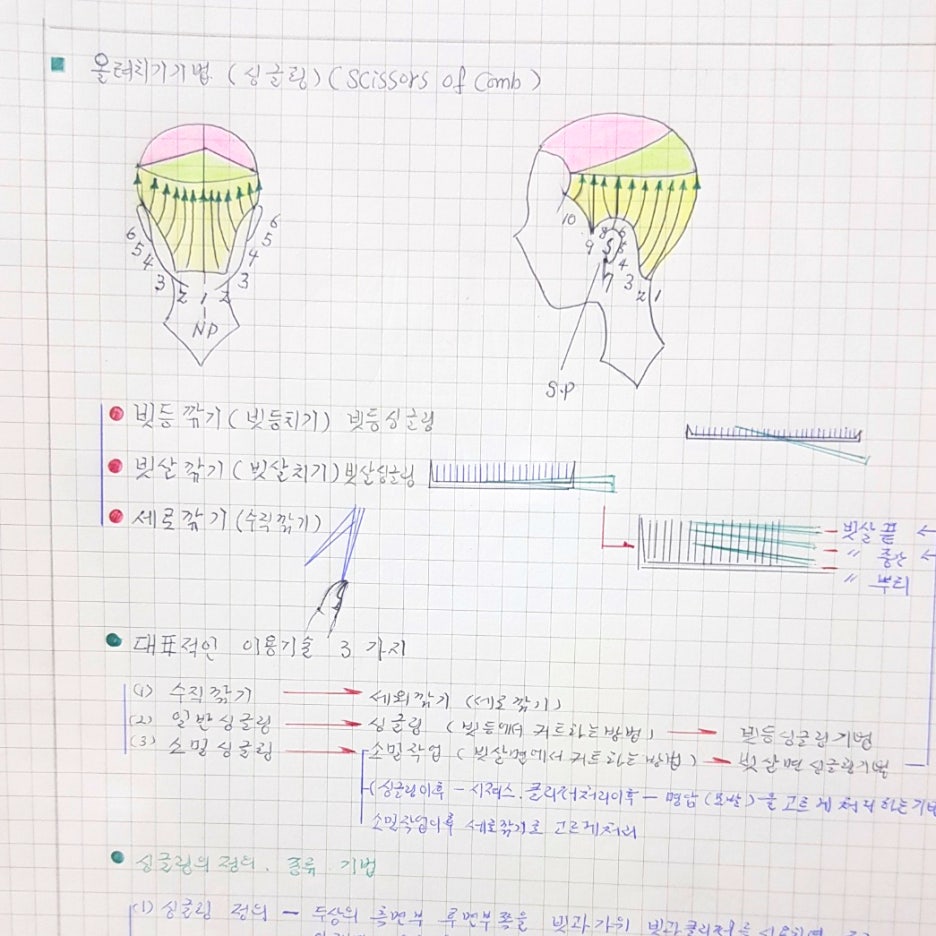 올려치기기법 (싱글링) (Scissors of Comb)
6 5 4 3 2 1 2 3 4 5 6
NP
10 9 8 7 6 5 4 3 2 1
S.P
빗등깎기 (빗등치기) 빗등싱글링
빗살깎기 (빗살치기) 빗살싱글링
세로깎기 (수직깎기)
빗살끝
〃 중간
〃 뿌리
대표적인 이용기술 3가지
(1) 수직깎기 → 세워깎기 (세로깎기)
(2) 일반싱글링 → 싱글링 (빗등에서 커트하는방법) → 빗등싱글링기법
(3) 소밀싱글링 → 소밀작업 (빗살면에서 커트하는방법) → 빗살면싱글링기법
(싱글링이후 - 시져스.클리퍼처리이후 - 명암(모발)을 고르게 처리하는기법
소밀작업이후 세로깎기로 고르게처리
싱글링의 정의. 종류. 기법
(1) 싱글링 정의 - 두상의 측면부 후면부쪽을 빗과가위 빗과클리퍼를